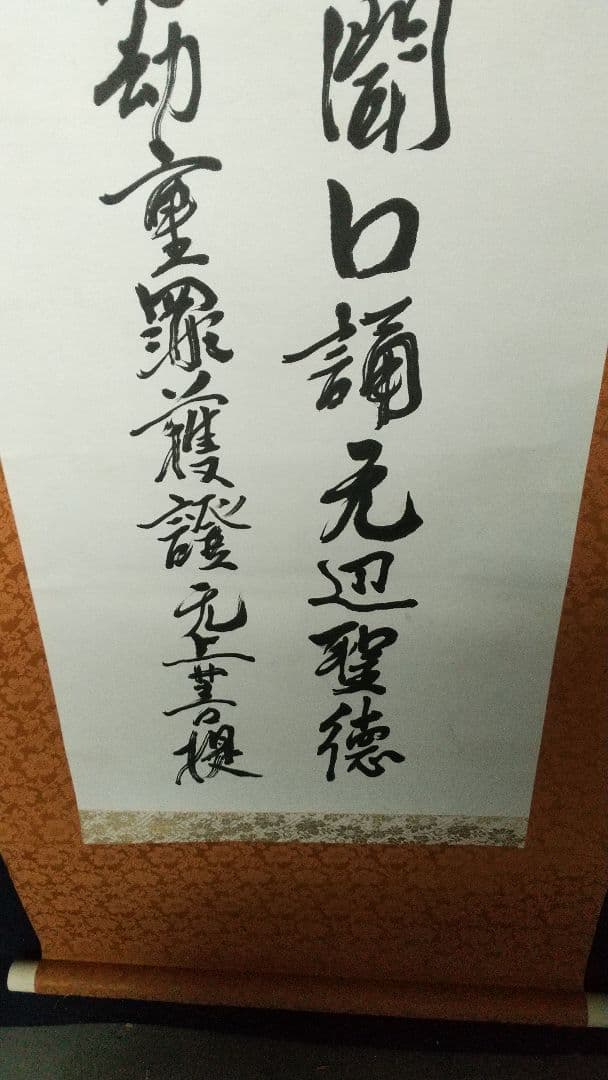 聞口誦无辺聖德
劫重罪護證无上菩提